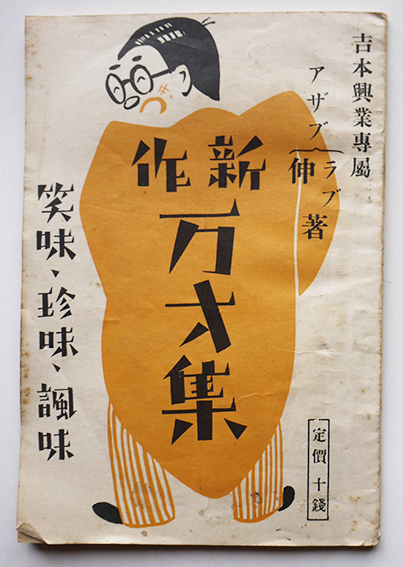 吉本興業專屬
アザブ〳〵ラブ伸著
新作
万才集
笑味、珍味、諷味
定價十錢